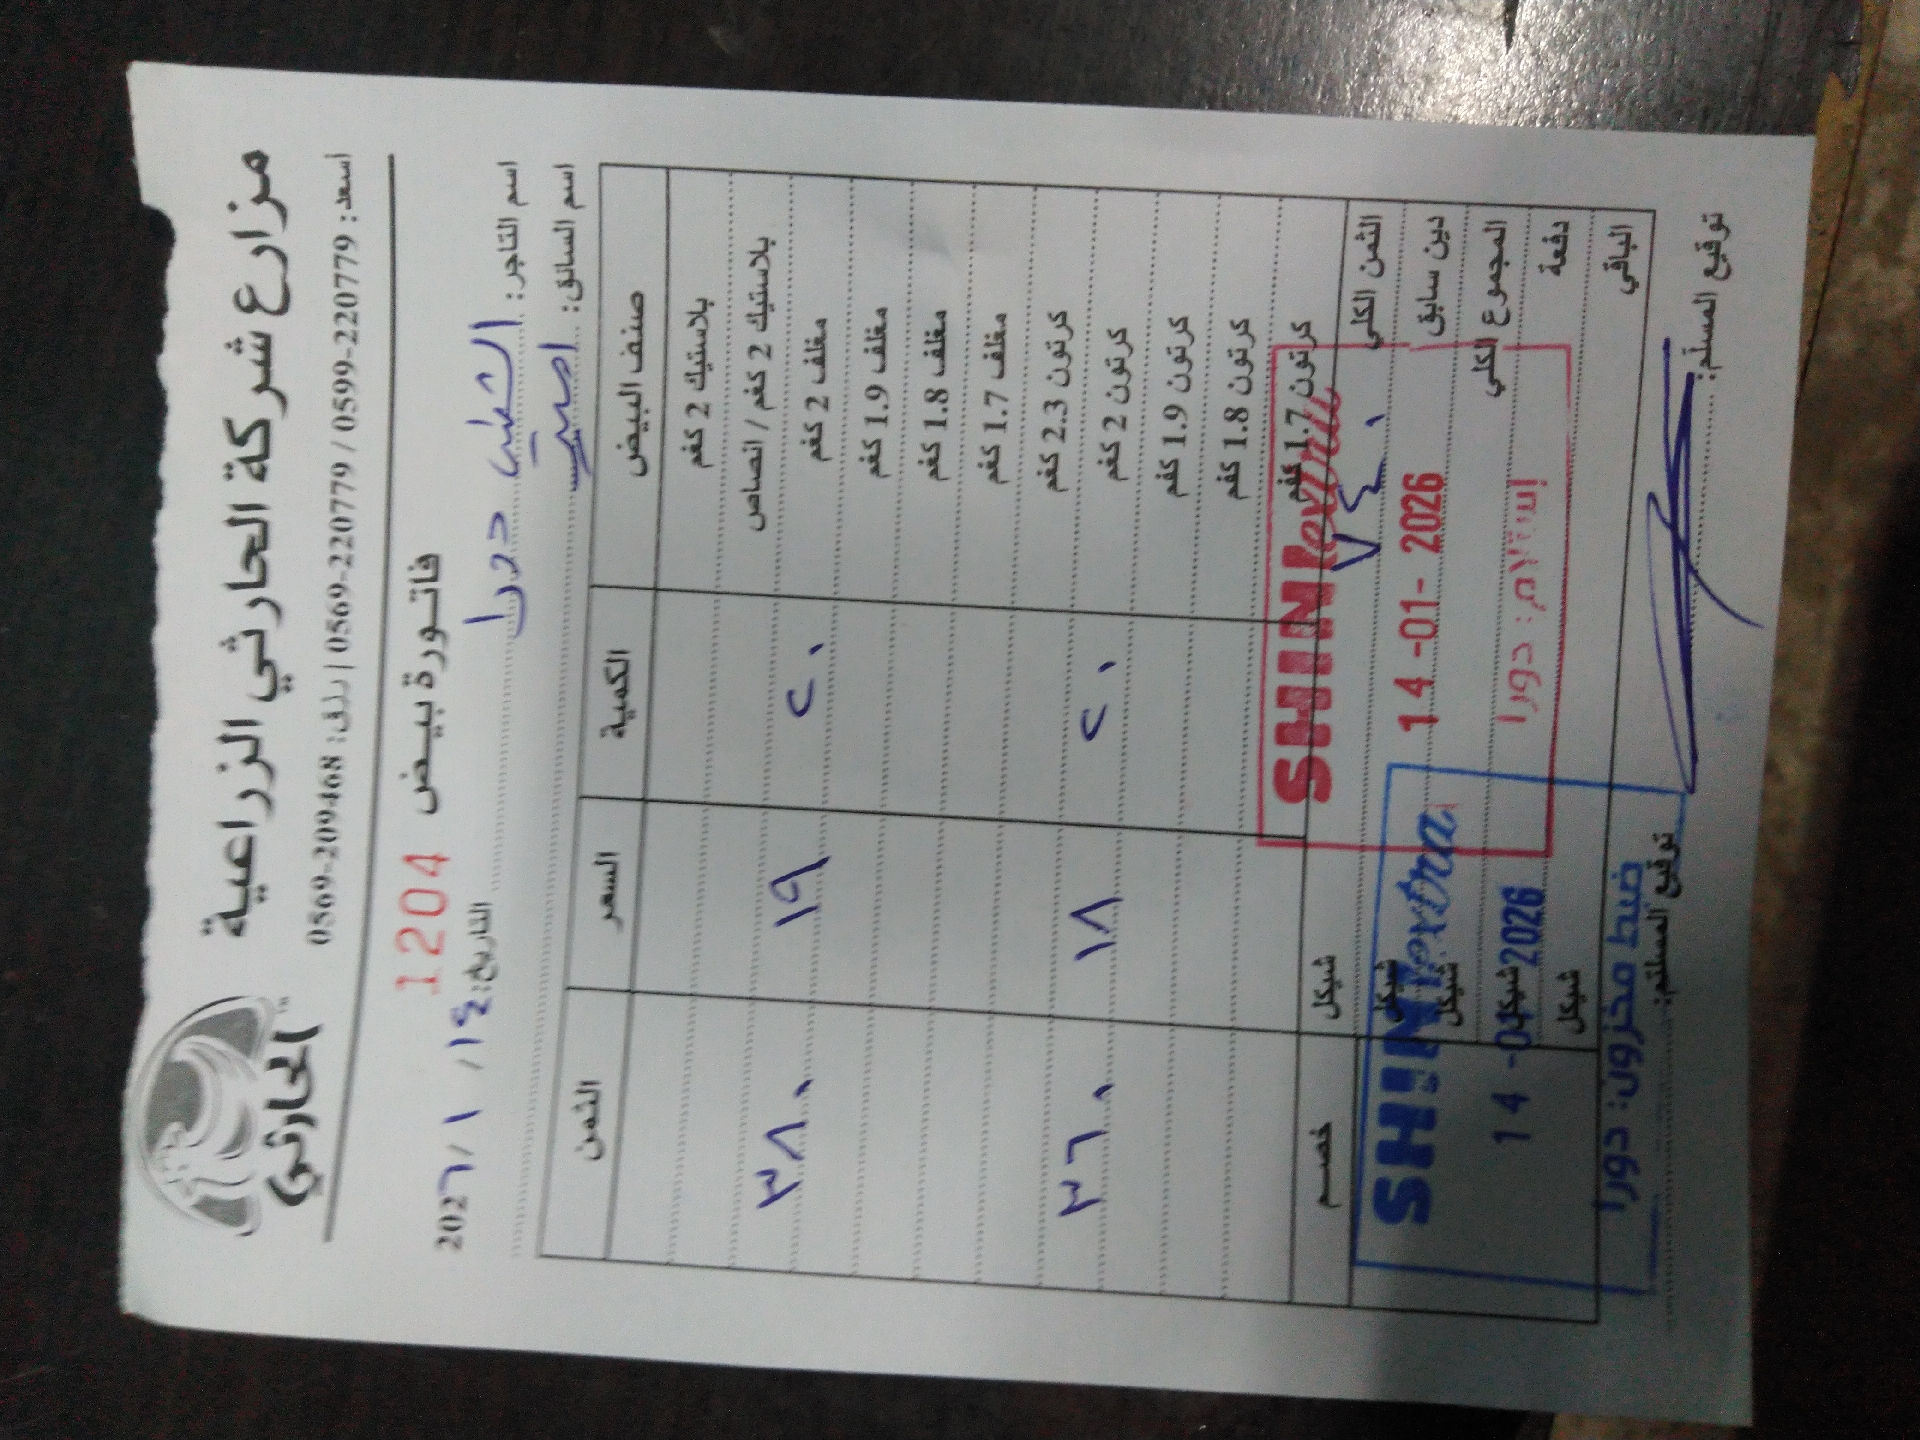 الحارثي
مزارع شركة الحارثي الزراعية
أسعد: 0599-220779 / 0569-220779 | 0569-209468
فاتورة بيض 1204
التاريخ: ١٤ / ١ / 202٦
اسم التاجر: دورا
اسم السائق:
صنف البيض الكمية السعر الثمن
بلاستيك 2 كغم
بلاستيك 2 كغم / انصاص
مغلف 2 كغم ٢٠ ١٩ ٣٨٠
مغلف 1.9 كغم
مغلف 1.8 كغم
مغلف 1.7 كغم
كرتون 2.3 كغم
كرتون 2 كغم ٢٠ ١٨ ٣٦٠
كرتون 1.9 كغم
كرتون 1.8 كغم
كرتون 1.7 كغم
الثمن الكلي ٧٤٠ شيكل خصم
دين سابق شيكل
المجموع الكلي شيكل
دفعة شيكل
الباقي شيكل
توقيع المسلّم: توقيع المستلم:
SHINI extra
14 -01- 2026
إستلام: دورا
SHINI extra
14 -01- 2026
ضبط مخزون: دورا